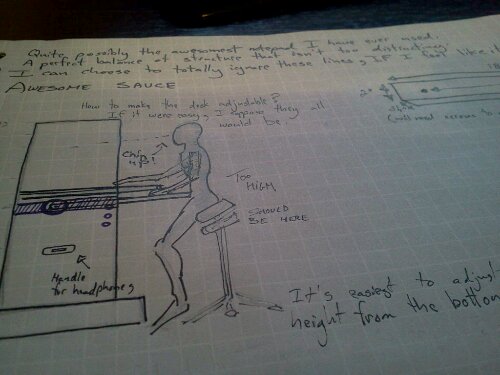 Quite possibly the awesomest notepad I have ever used.
A perfect balance of structure that isn't too distracting
I can choose to totally ignore these lines, IF I feel like it
AWESOME SAUCE
How to make the desk adjustable?
If it were easy, I suppose they all
would be.
2"
Chin
up!
Too
HIGH
SHOULD
BE HERE
Handle
for headphones
It's easiest to adjust
height from the bottom